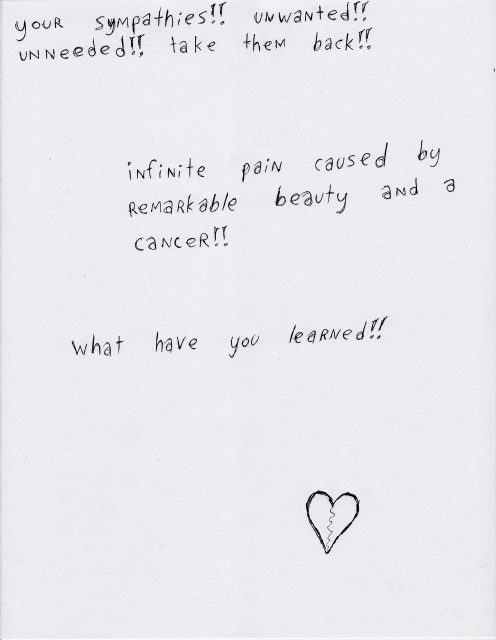 your sympathies!! unwanted!!
unneeded!! take them back!!
infinite pain caused by
remarkable beauty and a
cancer!!
what have you learned!!